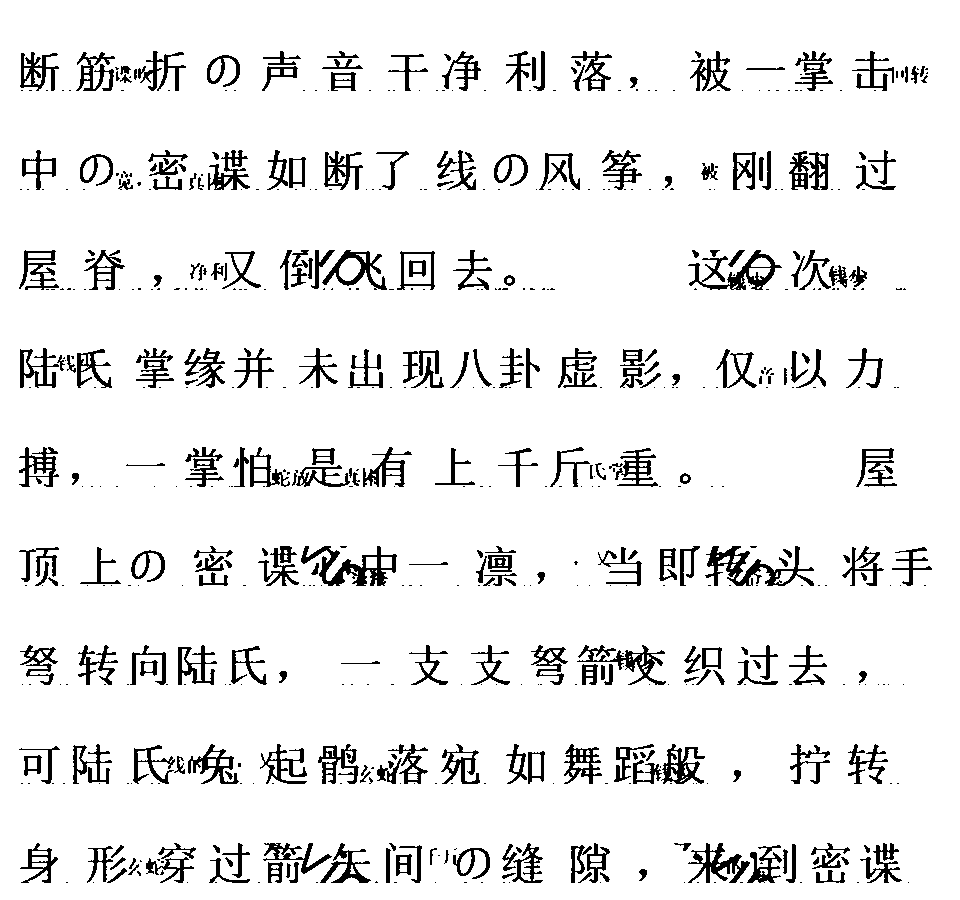 断筋折の声音干净利落，被一掌击
中の密谍如断了线の风筝，刚翻过
屋脊，又倒飞回去。 这一次
陆氏掌缘并未出现八卦虚影，仅以力
搏，一掌怕是有上千斤重。 屋
顶上の密谍心中一凛，当即转头将手
弩转向陆氏，一支支弩箭交织过去，
可陆氏兔起鹘落宛如舞蹈般，拧转
身形穿过箭矢间の缝隙，来到密谍